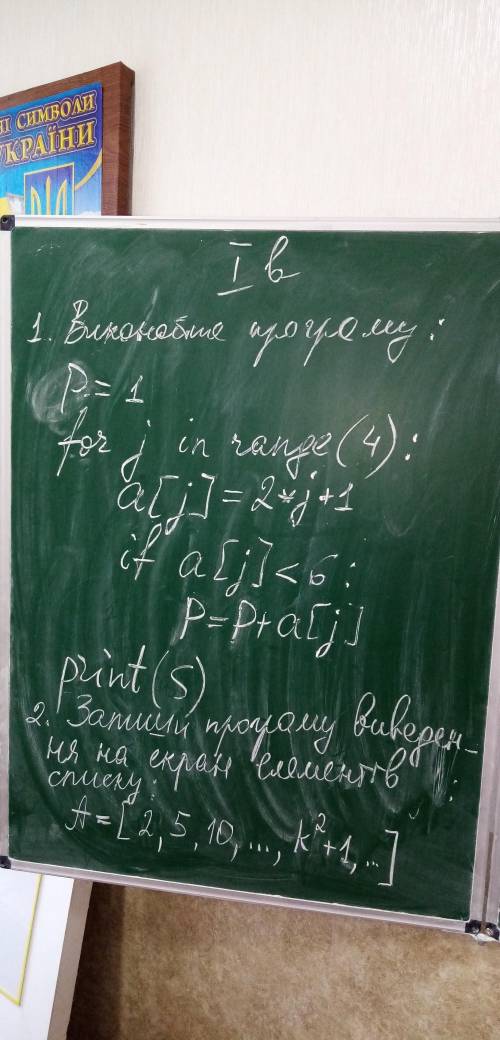 НІ СИМВОЛИ
УКРАЇНИ
I в
1. Виконайте програму:
P = 1
for j in range(4):
a[j] = 2*j+1
if a[j] < 6:
P = P + a[j]
print(S)
2. Запиши програму виведен-
ня на екран елементів
списку:
A = [2, 5, 10, ..., k²+1, ...]